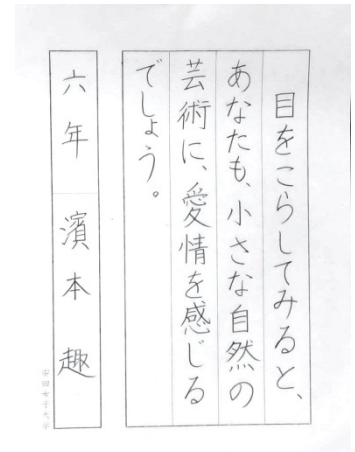 目をこらしてみると、
あなたも、小さな自然の
芸術に、愛情を感じる
でしょう。
六年 濱本 趣
安田女子大学